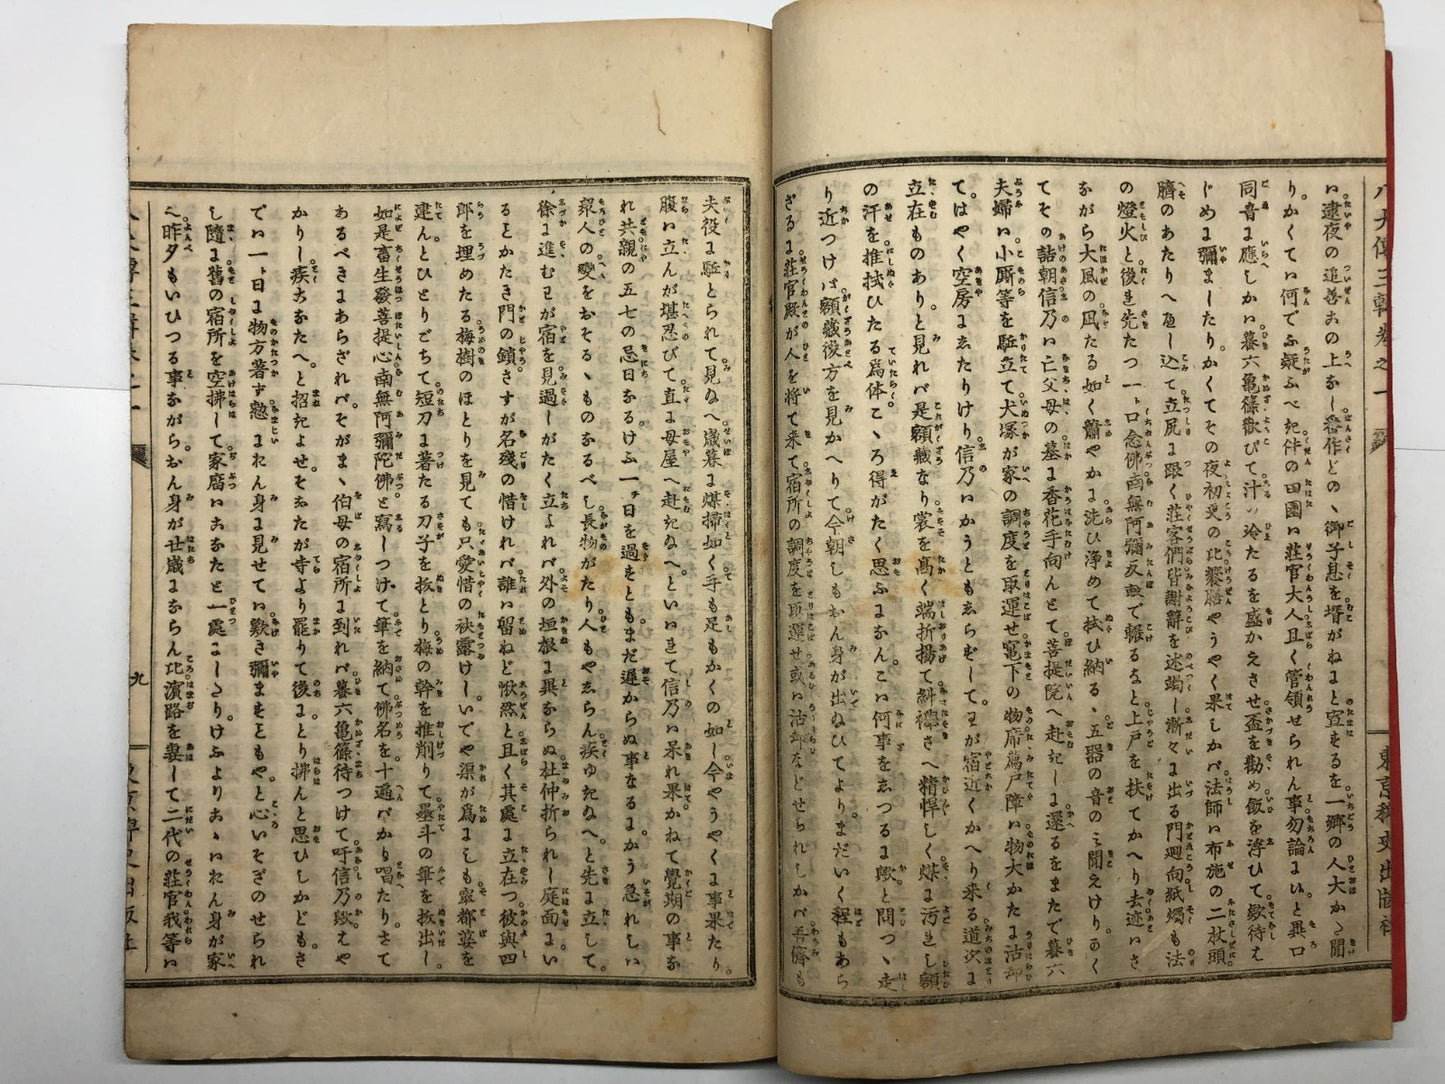 八犬傳三輯卷之一
東京稗史出版社
い逮夜の追善おの上なー番作どのゝ御子息を壻がねと宣をるを一郷の人大かた聞
りかくてい何でふ疑ふべき件の田園い荘官大人且く管領せられん事勿論まいと異口
同音ま應しかい蟇六龜篠歓びて汁の冷たるを盛かえさせ盃を勸め飯を浮ひて欸待え
じめま彌まーたりかくてその夜初更の比饗膳やうやく果しかバ法師い布施の二枚頭
臍のあたりへ推し込て立尻ま跟く荘客們皆謝辭を述竭ー漸々ま出る門廻向紙燭も法
の燈火と後き先たつ一ト口念佛南無阿彌反敢で輾るなと上戸を扶てかへり去迹いさ
ながら大風の凪たる如く蕭やかま洗ひ浄めて拭ひ納る五器の音のミ聞えけりかく
てその詰朝信乃い亡父母の墓ま香花手向んとて菩提院へ赴きしま還るをまたで蟇六
夫婦い小廝等を駈立て犬塚が家の調度を取運せ竃下の物席薦戸障い物大かたま沽却
てはやく空房まなたりけり信乃いかうともゑらずしてわが宿近くかへり来る道次ま
立在ものありと見れバ是額藏なり裳を高く端折揚て糾襷さへ精悍しく煤ま汚れし額
の汗を推拭ひたる爲体こゝろ得がたく思ふまなんこい何事をゑつるま歟と問つゝ走
り近つけば額藏後方を見かへりて今朝しもおん身が出ぬひてよりまだいく程もあら
ざるま荘官殿が人を将て来て宿所の調度を取運せ或い沽却などせられしかバ吾儕も
夫役ま駈とられて見ぬへ歳暮ま煤掃如く手も足もかくの如ー今やうやくま事果たり
腹い立んが堪忍びて直ま母屋へ赴きぬへといいれて信乃い呆れ果かねて覺期の事な
れ共親の五七の忌日なるけふ一ト日を過をともまだ遅からぬ事なるまかう急れしい
衆人の變をおそるゝものなるべし長物がたり人もやゑらん疾ゆきぬへと先ま立して
徐ま進むわが宿を見過ーがたく立よれバ外の垣根ま異ならぬ杜仲折られー庭面まい
るとかたき門の鎖さすが名残の惜けれバ誰い留ねど惘然と且く其處ま立在つ彼與四
郎を埋めたる梅樹のほとりを見ても只愛惜の袂露けーいでや渠が爲まも率都婆を
建んとひとりごちて短刀ま著たる刀子を抜とり梅の幹を推削りて墨斗の筆を抜出ー
如是畜生發菩提心南無阿彌陀佛と寫ーつけて筆を納て佛名を十遍バかり唱たりさて
あるべきまあらざれバそがまゝ伯母の宿所ま到れバ蟇六龜篠待つけて吁信乃歟えや
かりー疾なたへと招きよせそなたが寺より罷りて後まとり拂んと思ひしかどもさ
でい一ト日ま物方著ず憖まれん身ま見せてい歎き彌まをともやと心いそぎのせられ
し隨ま舊の宿所を空拂して家廢いこなたと一處まーたりけふよりこゝいれん身が家
へ昨夕もいひつる事ながらおん身が廿歳まならん比濱路を妻して二代の荘官我等い
九